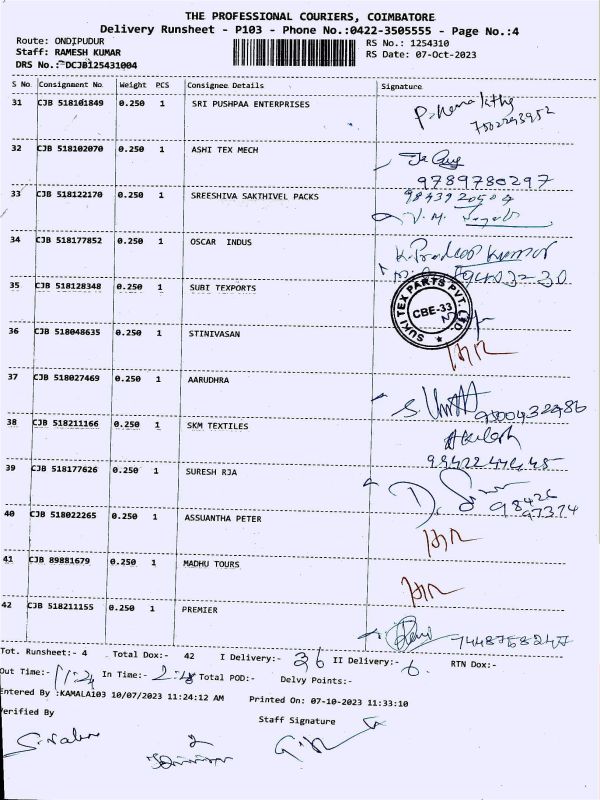 THE PROFESSIONAL COURIERS, COIMBATORE
Delivery Runsheet - P103 - Phone No.:0422-3505555 - Page No.:4
Route: ONDIPUDUR
RS No.: 1254310
Staff: RAMESH KUMAR
RS Date: 07-Oct-2023
DRS No.: DCJB125431004
S No Consignment No. Weight PCS Consignee Details Signature
31 CJB 518101849 0.250 1 SRI PUSHPAA ENTERPRISES
7502293952
32 CJB 518102070 0.250 1 ASHI TEX MECH
9789780297
33 CJB 518122170 0.250 1 SREESHIVA SAKTHIVEL PACKS
9843920504
34 CJB 518177852 0.250 1 OSCAR INDUS
K. Pradeep Kumar
35 CJB 518128348 0.250 1 SUBI TEXPORTS
SUKI TEX PARTS PVT. LTD.
CBE-33
36 CJB 518048635 0.250 1 STINIVASAN
37 CJB 518027469 0.250 1 AARUDHRA
38 CJB 518211166 0.250 1 SKM TEXTILES
39 CJB 518177626 0.250 1 SURESH RJA
98426
97374
40 CJB 518022265 0.250 1 ASSUANTHA PETER
41 CJB 89881679 0.250 1 MADHU TOURS
42 CJB 518211155 0.250 1 PREMIER
Tot. Runsheet:- 4 Total Dox:- 42 I Delivery:- 36 II Delivery:- 6. RTN Dox:-
Out Time:- 11.24 In Time:- 2.48 Total POD:- Delvy Points:-
Entered By :KAMALA103 10/07/2023 11:24:12 AM Printed On: 07-10-2023 11:33:10
Verified By
Staff Signature